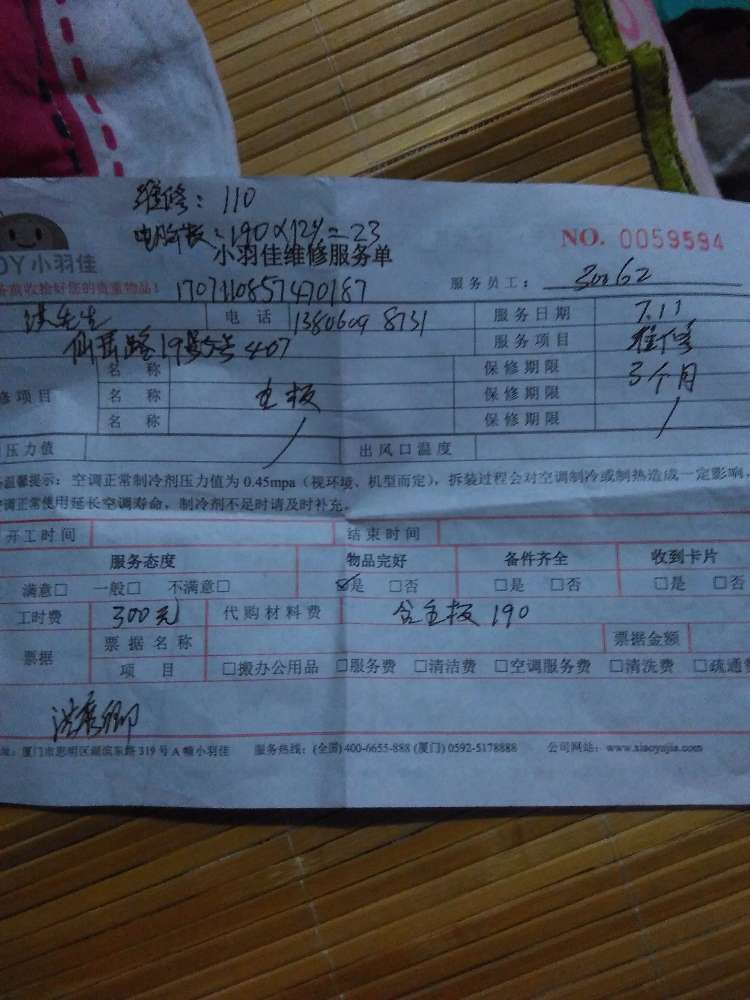 维修：110
电脑板：190×12%=23
小羽佳维修服务单
NO. 0059594
OY小羽佳
收捡好您的贵重物品！
1707110857470187
服务员工：30062
先生 电话 13806098731 服务日期 7.11
路19号 407 服务项目 维修
修项目 名称 保修期限 3个月
名称 主板 保修期限
名称 保修期限 /
压力值 / 出风口温度
温馨提示：空调正常制冷剂压力值为 0.45mpa（视环境、机型而定），拆装过程会对空调制冷或制热造成一定影响，
调正常使用延长空调寿命，制冷剂不足时请及时补充。
开工时间 结束时间
服务态度 物品完好 备件齐全 收到卡片
满意□ 一般□ 不满意□ ☑是 □否 □是 □否 □是 □否
工时费 300元 代购材料费 含主板190
票据 票据名称 票据金额
项目 □搬办公用品 □服务费 □清洁费 □空调服务费 □清洗费 □疏通费
址：厦门市思明区湖滨东路 319 号 A 幢小羽佳 服务热线：(全国) 400-6655-888 (厦门) 0592-5178888 公司网站：www.xiaoyujia.com